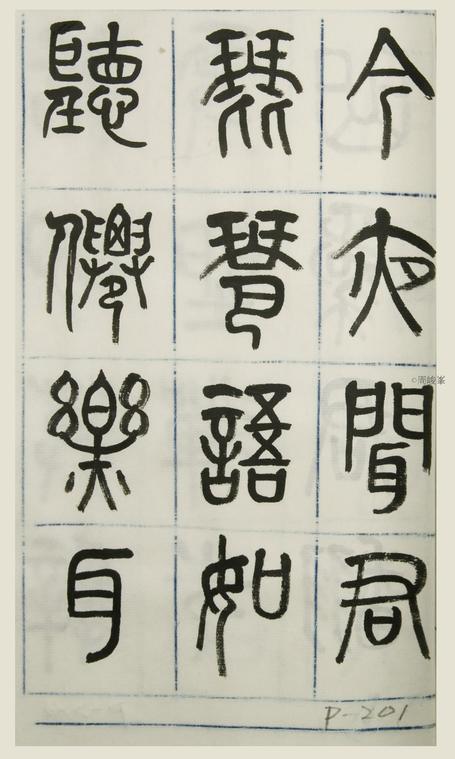 今夜聞君
琵琶語如
聽僊樂耳
©周峻峯
P-201